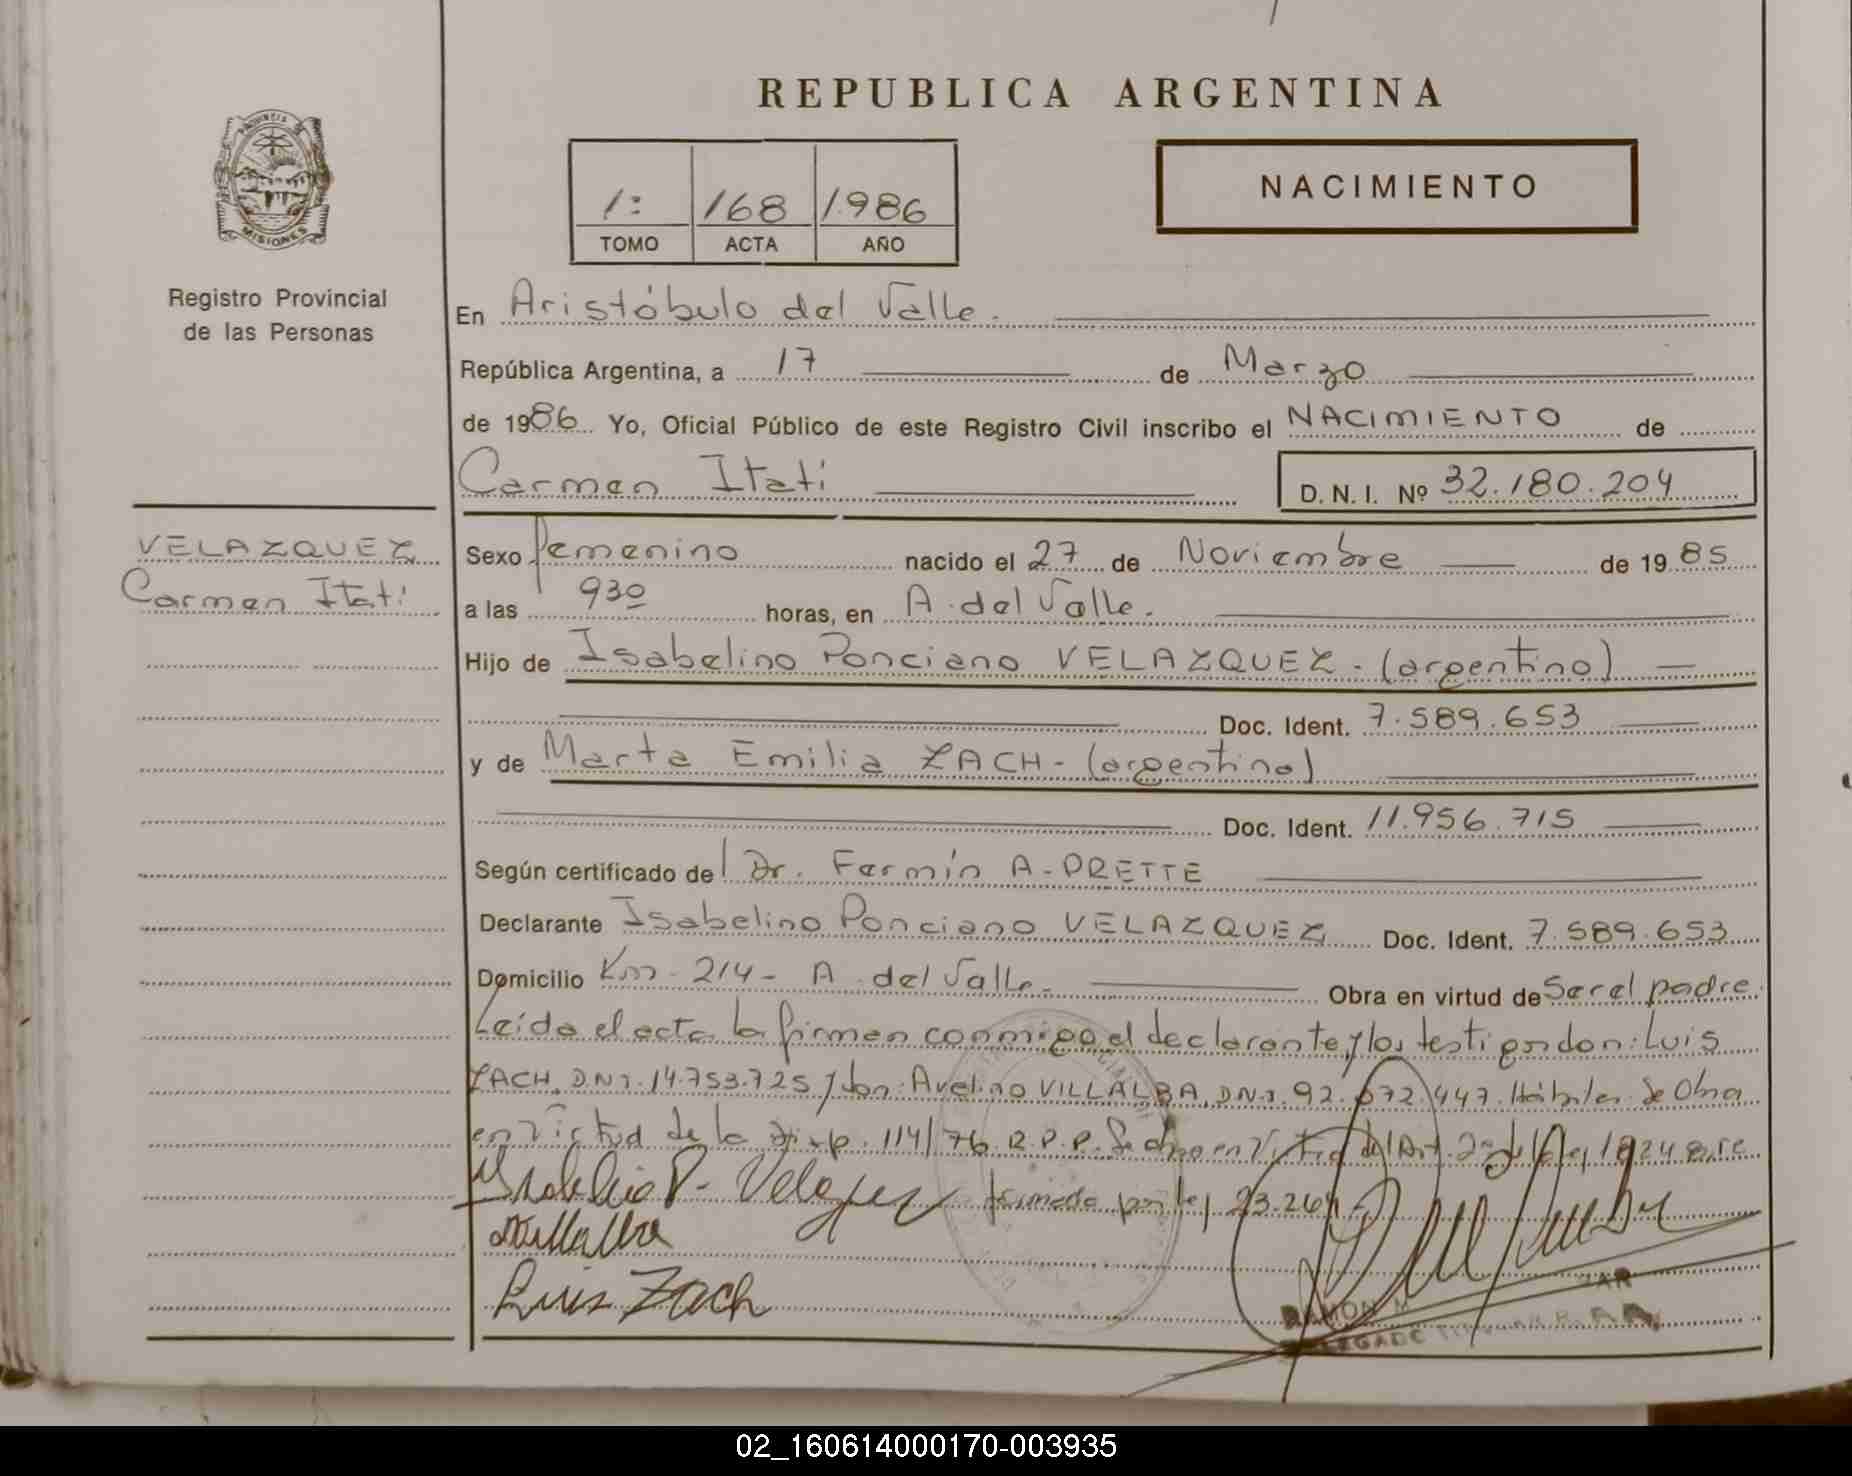 REPUBLICA ARGENTINA
PROVINCIA DE
MISIONES
1: 168 1.986
TOMO ACTA AÑO
NACIMIENTO
Registro Provincial
de las Personas
En Aristóbulo del Valle.
República Argentina, a 17 de Marzo
de 1986 Yo, Oficial Público de este Registro Civil inscribo el NACIMIENTO de
Carmen Itatí
D. N. I. Nº 32.180.204
VELAZQUEZ
Carmen Itatí
Sexo femenino nacido el 27 de Noviembre de 1985
a las 930 horas, en A. del Valle.
Hijo de Isabelino Ponciano VELAZQUEZ - (argentino)
Doc. Ident. 7.589.653
y de Marta Emilia ZACH - (argentina)
Doc. Ident. 11.956.715
Según certificado del Dr. Fermín A. PRETTE
Declarante Isabelino Ponciano VELAZQUEZ Doc. Ident. 7.589.653
Domicilio Km - 214 - A. del Valle. Obra en virtud de Ser el padre.
Leída el acta la firman conmigo el declarante y los testigos don: Luis
ZACH, D.N.I. 14.753.725 y don: Avelino VILLALBA, D.N.I. 92.072.447. Hábiles. Se Obra
en Virtud de la Disp. 114/76 R.P.P. Se obra en Virtud del Art. 2º de la Ley 18248
por Ley 23.264
P. Velazquez
AVillalba
Luis Zach
RAMON M.
DELEGADO
02_160614000170-003935